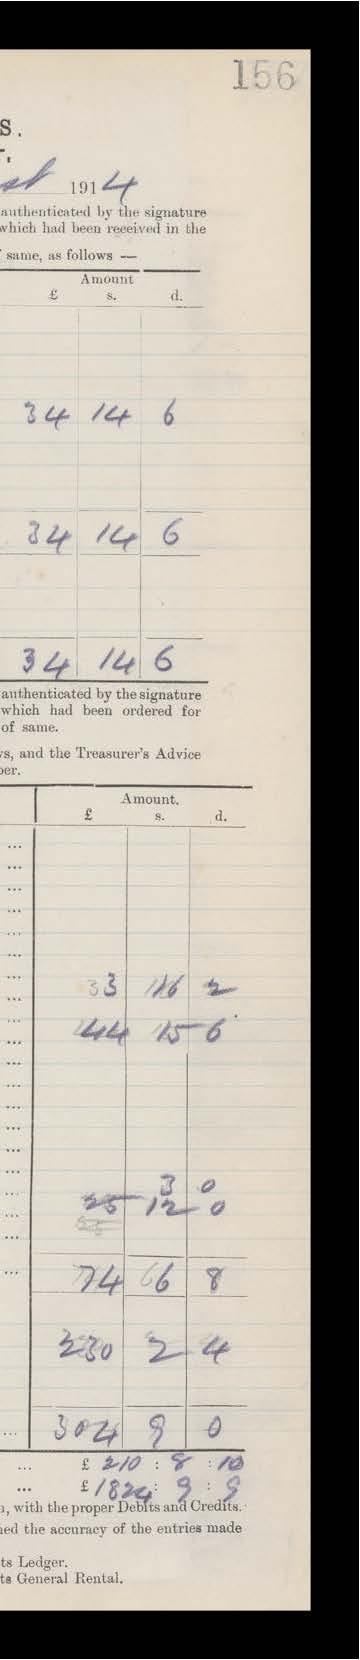 156
S.
T.
st 1914
authenticated by the signature
which had been received in the
same, as follows —
Amount
£ s. d.
34 14 6
34 14 6
34 14 6
authenticated by the signature
which had been ordered for
of same.
vs, and the Treasurer's Advice
per.
Amount.
£ s. d.
...
...
...
...
...
...
...
33 16 2
... 44 15 6
...
...
...
...
...
...
3 0
... 12 0
...
... 74 6 8
230 2 4
... 304 9 0
... £ 210 : 8 : 10
... £ 1824 : 9 : 9
n, with the proper Debits and Credits.
ned the accuracy of the entries made
ts Ledger.
ts General Rental.